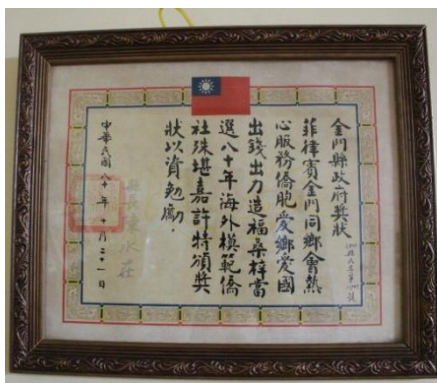 金門縣政府奬狀
菲律賓金門同鄉會熱
心服務僑胞愛鄉愛國
出錢出力造福桑梓當
選八十年海外模範僑
社殊堪嘉許特頒奬
狀以資勉勵.
縣長陳水在
中華民國八十年十月二十一日